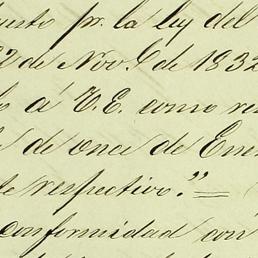 uesto pr. la Ley del
22 de Nov.e de 1832
á V.E. como res
de once de En
te respectivo."=
conformidad con